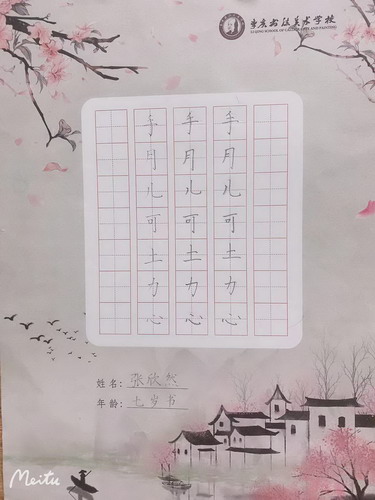 李庆书法美术学校
手 手 手
月 月 月
儿 儿 儿
可 可 可
土 土 土
力 力 力
心 心 心
姓名：张欣然
年龄：七岁书
Meitu